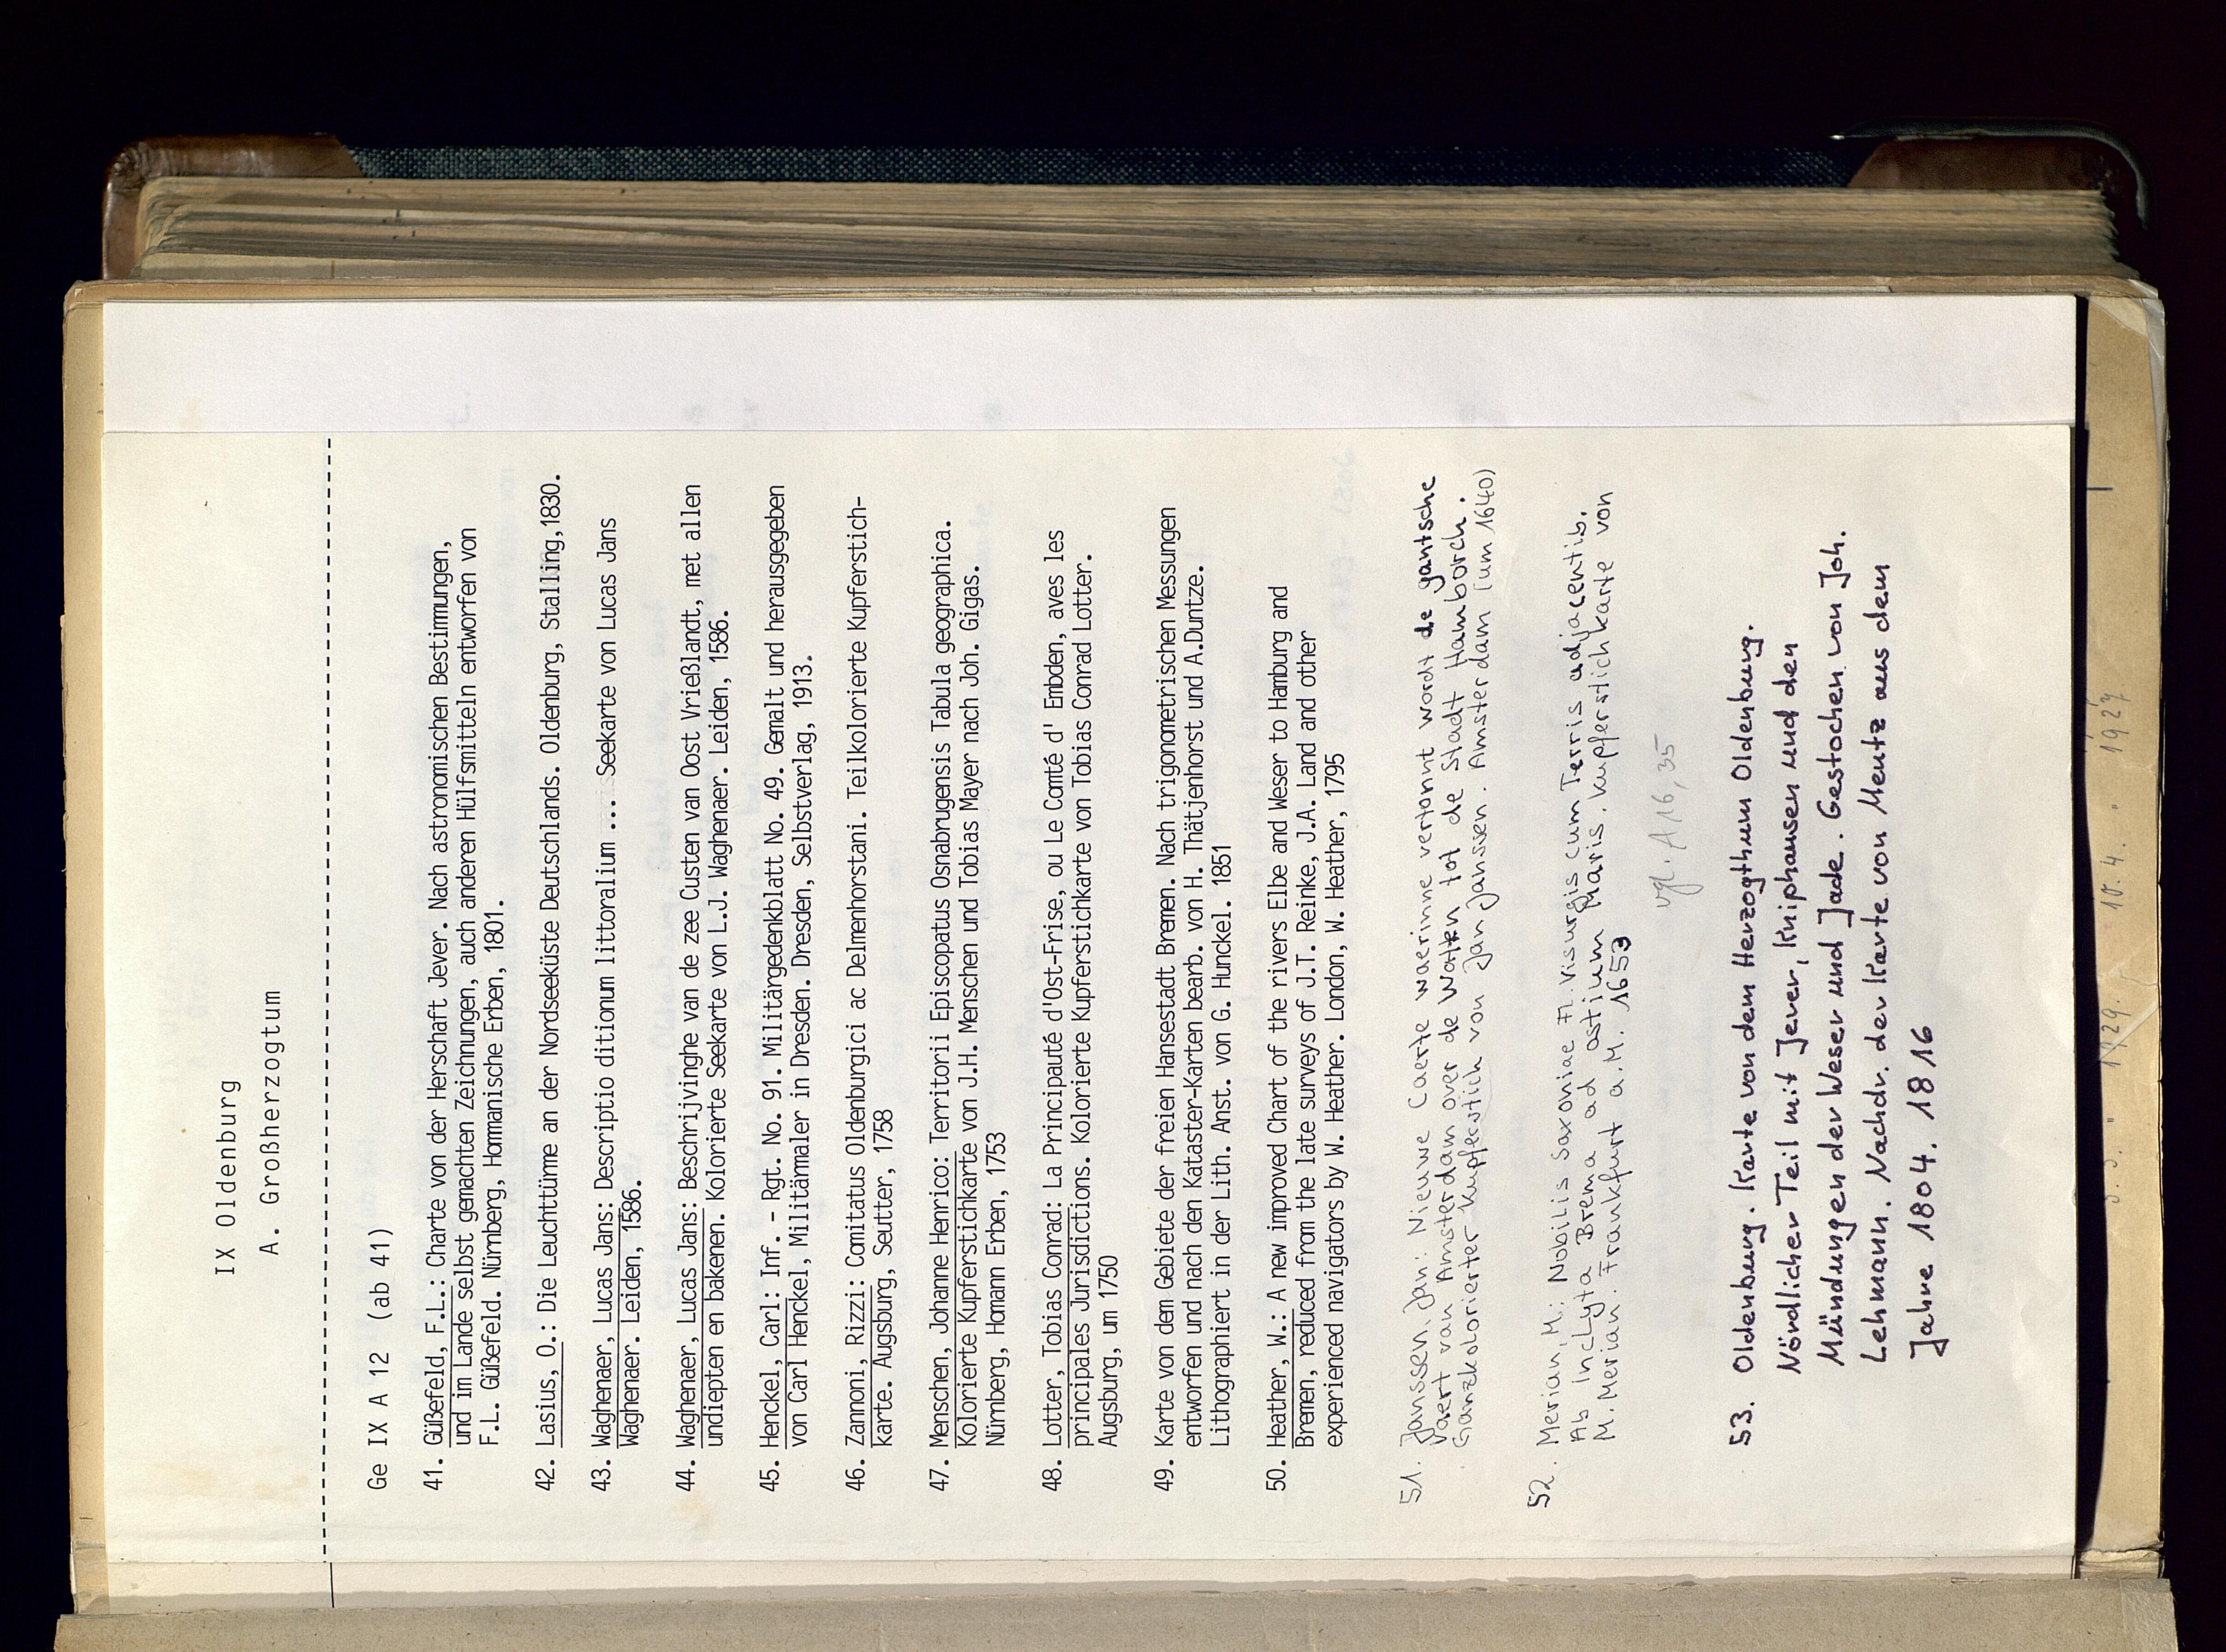 IX Oldenburg
A. Großherzogtum
Ge IX A 12 (ab 41)
41. Güßefeld, F.L.: Charte von der Herschaft Jever. Nach astronomischen Bestimmungen,
und im Lande selbst gemachten Zeichnungen, auch anderen Hülfsmitteln entworfen von
F.L. Güßefeld. Nürnberg, Hommanische Erben, 1801.
42. Lasius, O.: Die Leuchttürme an der Nordseeküste Deutschlands. Oldenburg, Stalling,1830.
43. Waghenaer, Lucas Jans: Descriptio ditionum littoralium ... Seekarte von Lucas Jans
Waghenaer. Leiden, 1586.
44. Waghenaer, Lucas Jans: Beschrijvinghe van de zee Custen van Oost Vrießlandt, met allen
undiepten en bakenen. Kolorierte Seekarte von L.J. Waghenaer. Leiden, 1586.
45. Henckel, Carl: Inf. - Rgt. No. 91. Militärgedenkblatt No. 49. Gemalt und herausgegeben
von Carl Henckel, Militärmaler in Dresden. Dresden, Selbstverlag, 1913.
46. Zannoni, Rizzi: Comitatus Oldenburgici ac Delmenhorstani. Teilkolorierte Kupferstich-
karte. Augsburg, Seutter, 1758
47. Menschen, Johanne Henrico: Territorii Episcopatus Osnabrugensis Tabula geographica.
Kolorierte Kupferstichkarte von J.H. Menschen und Tobias Mayer nach Joh. Gigas.
Nürnberg, Homann Erben, 1753
48. Lotter, Tobias Conrad: La Principauté d'Ost-Frise, ou Le Comté d' Embden, aves les
principales Jurisdictions. Kolorierte Kupferstichkarte von Tobias Conrad Lotter.
Augsburg, um 1750
49. Karte von dem Gebiete der freien Hansestadt Bremen. Nach trigonometrischen Messungen
entworfen und nach den Kataster-Karten bearb. von H. Thätjenhorst und A.Duntze.
Lithographiert in der Lith. Anst. von G. Hunckel. 1851
50. Heather, W.: A new improved Chart of the rivers Elbe and Weser to Hamburg and
Bremen, reduced from the late surveys of J.T. Reinke, J.A. Land and other
experienced navigators by W. Heather. London, W. Heather, 1795
51. Janssen, Jan: Nieuwe Caerte waerinne vertonnt wordt de gantsche
Vaert van Amsterdam over de Watten tot de Stadt Hamborch.
Ganzkolorierter Kupferstich von Jan Janssen. Amsterdam (um 1640)
52. Merian, M.: Nobilis Saxoniae Fl. Visurgis cum Terris adjacentib.
Ab Inclyta Brema ad ostium Maris. Kupferstichkarte von
M. Merian. Frankfurt a. M. 1653
vgl. A 16, 35
53. Oldenburg. Karte von dem Herzogthum Oldenburg.
Nördlicher Teil mit Jever, Kniphausen und den
Mündungen der Weser und Jade. Gestochen von Joh.
Lehmann. Nachdr. der Karte von Mentz aus dem
Jahre 1804. 1816
5.3. 1929. 10.4. 1927